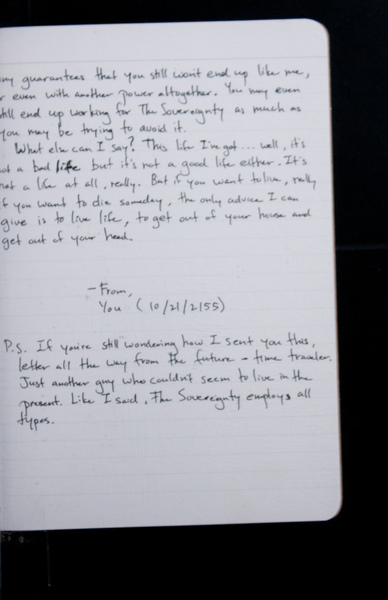 any guarantees that you still won't end up like me,
r even with another power altogether. You may even
till end up working for The Sovereignty as much as
you may be trying to avoid it.
What else can I say? This life I've got... well, it's
ot a bad life but it's not a good life either. It's
not a life at all, really. But if you want to live, really
if you want to die someday, the only advice I can
give is to live life, to get out of your house and
get out of your head.
- From,
You (10/21/2155)
P.S. If you're still wondering how I sent you this,
letter all the way from the future - time traveler.
Just another guy who couldn't seem to live in the
present. Like I said, The Sovereignty employs all
types.